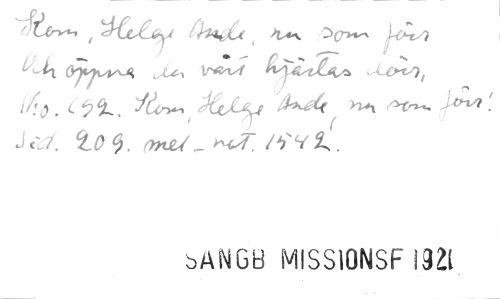 Kom, Helge Ande, nu som förr
Ack öppna du vårt hjärtas dörr,
N:o. 192. Kom, Helge Ande, nu som förr!
Sid. 209. mel-not. 1542.
SANGB MISSIONSF 1921